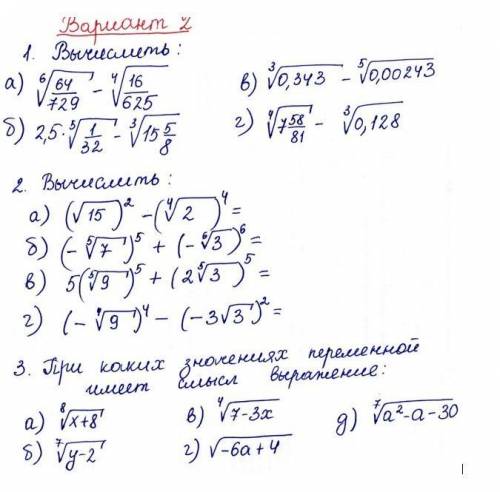 Вариант 2
1. Вычислить:
а) ⁶√(64/729) - ⁴√(16/625)
в) ³√0,343 - ⁵√0,00243
б) 2,5·⁵√(1/32) - ³√(15 5/8)
г) ⁴√(7 58/81) - ³√0,128
2. Вычислить:
а) (√15)² - (⁴√2)⁴ =
б) (-⁵√7)⁵ + (-⁶√3)⁶ =
в) 5(⁵√9)⁵ + (2⁵√3)⁵ =
г) (-⁴√9)⁴ - (-3√3)² =
3. При каких значениях переменной
имеет смысл выражение:
а) ⁸√(x+8)
в) ⁴√(7-3x)
д) ⁷√(a²-a-30)
б) ⁷√(y-2)
г) √(-6a+4)